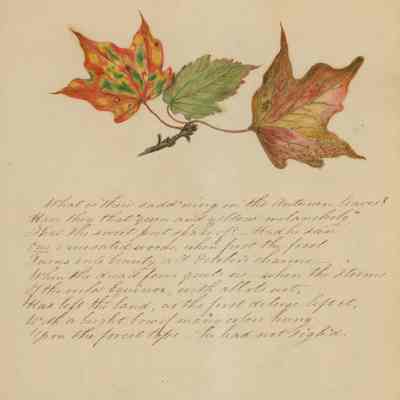 What is there sadd'ning in the Autumn leaves?
Have they that "green and yellow melancholy"
That the sweet poet spake of? — Had he seen
Our variegated woods, when first the frost
Turns into beauty all October's charms —
When the dread fever quits us — when the storms
Of the wild Equinox, with all its wet,
Has left the land, as the first deluge left it,
With a bright bow of many colors hung
Upon the forest tops — he had not sigh'd.